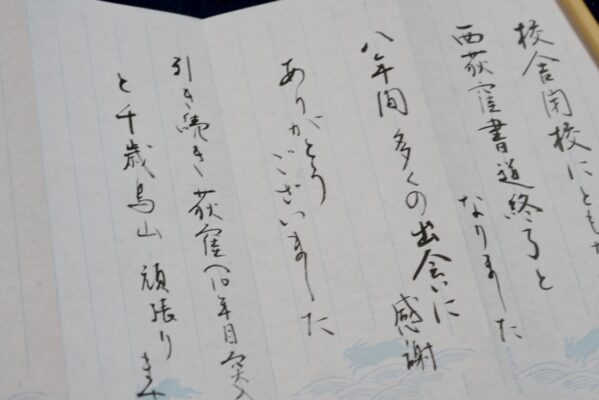 校舎閉校にともな
西荻窪書道終了と
なりました
八年間多くの出会いに
感謝
ありがとう
ございました
引き続き荻窪(10年目突入
と千歳烏山 頑張りま